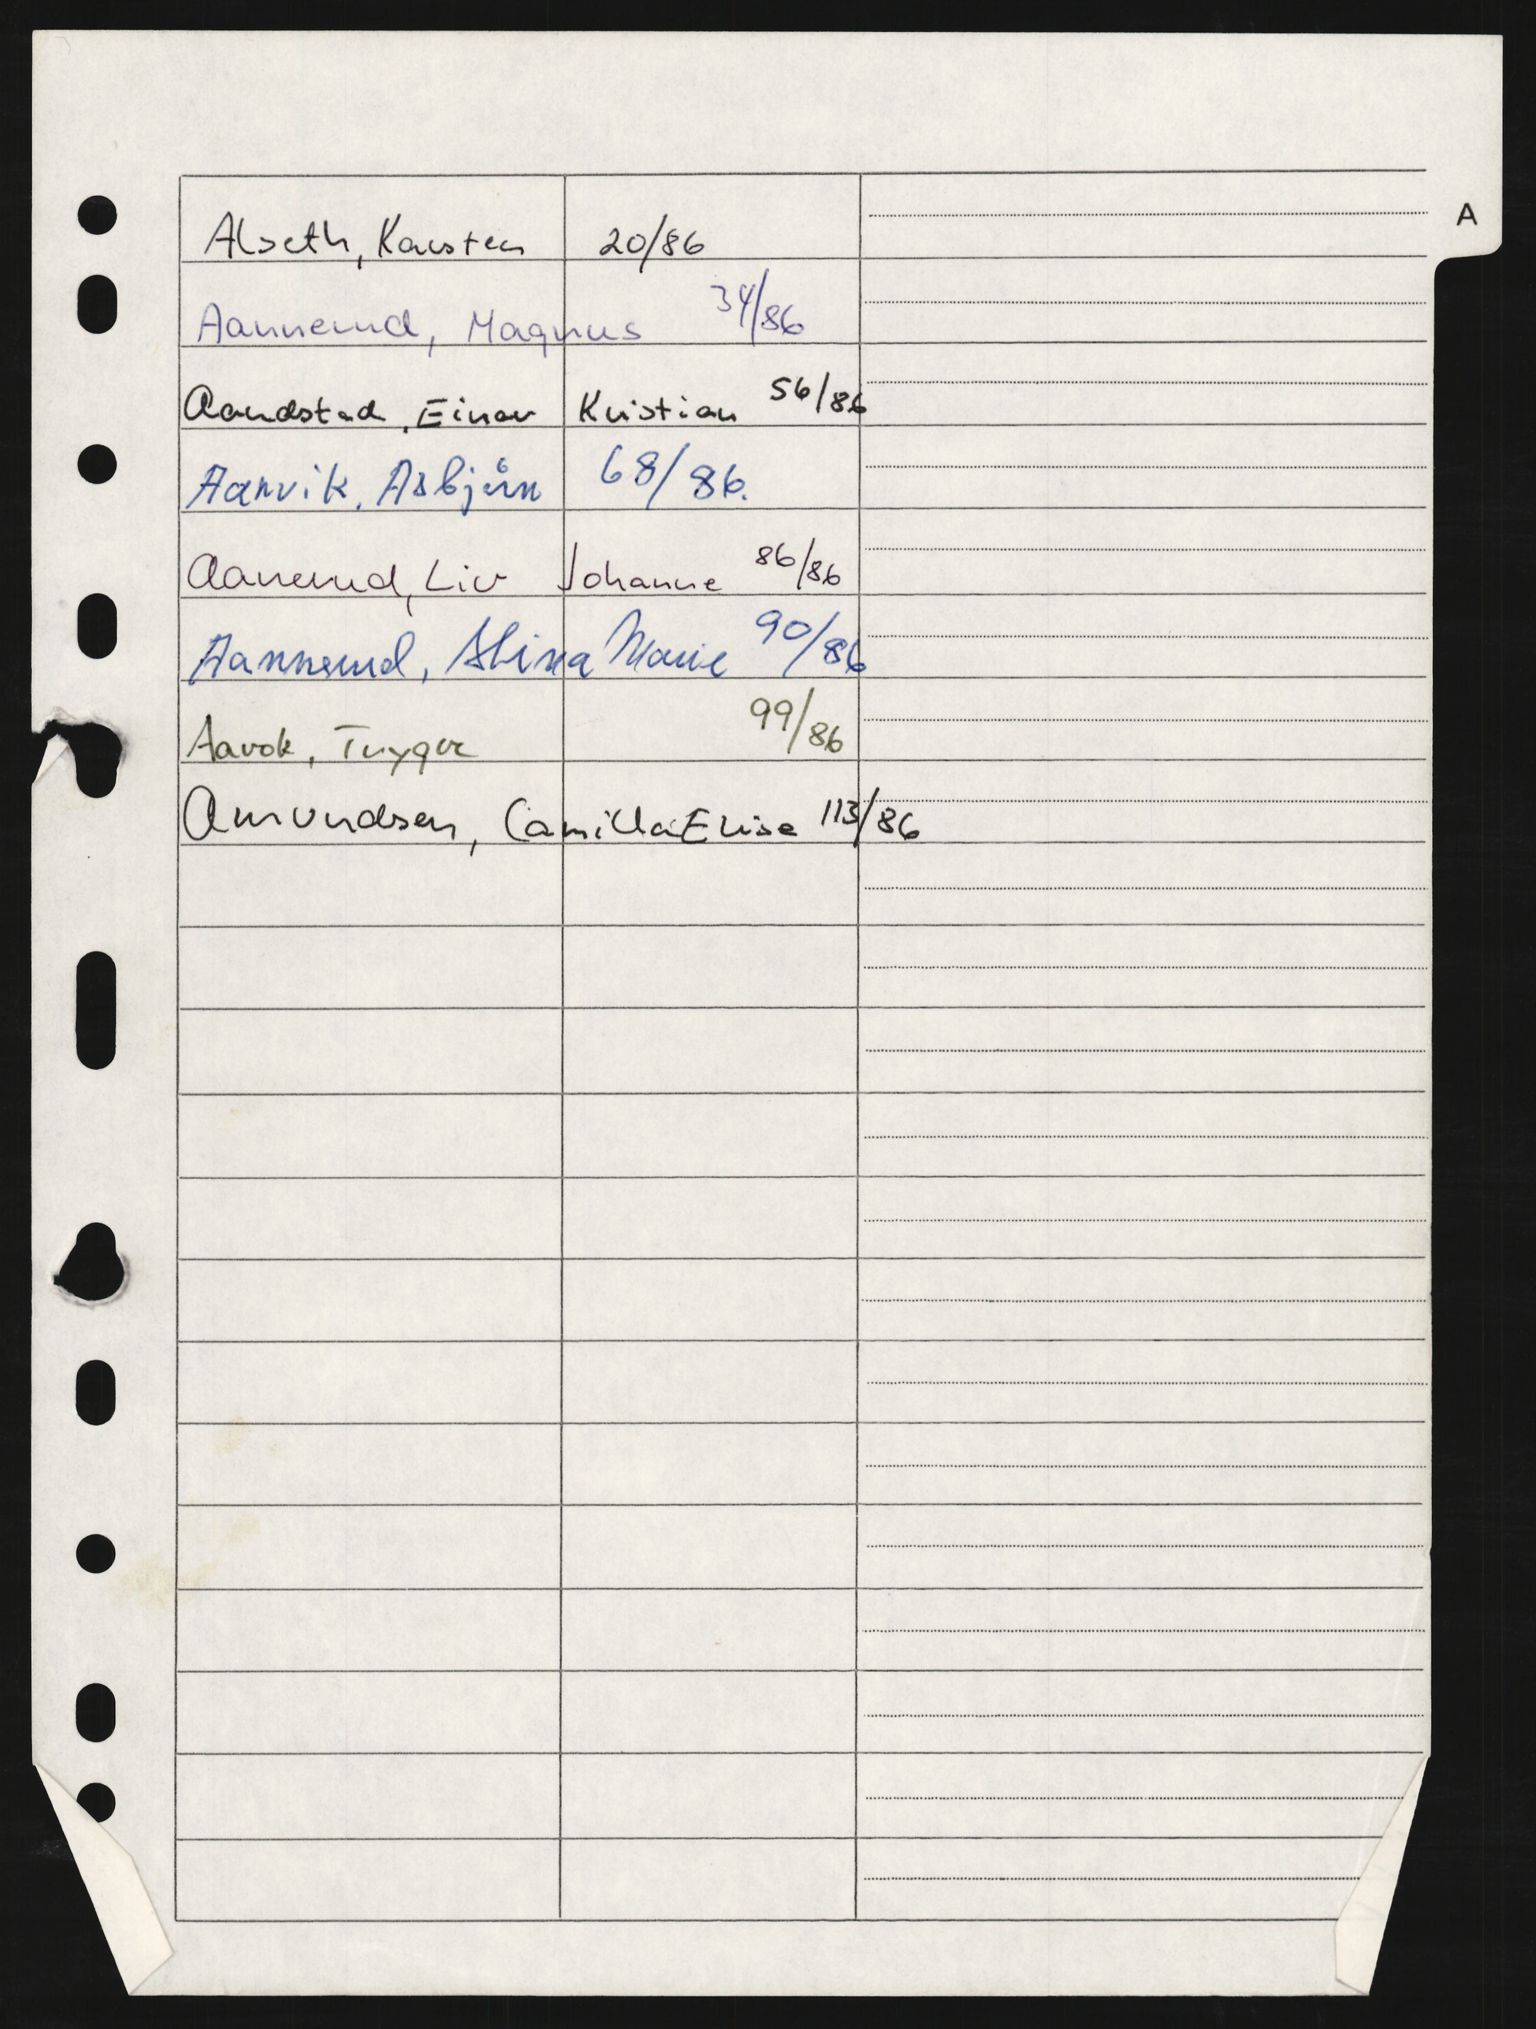 A
Alseth, Karsten 20/86
Aannerud, Magnus 34/86
Aandstad, Einar Kristian 56/86
Aanvik, Asbjørn 68/86.
Aanerud, Liv Johanne 86/86
Aannerud, Marie 90/86
Aavok, Trygve 99/86
Amundsen, Camilla Elise 113/86